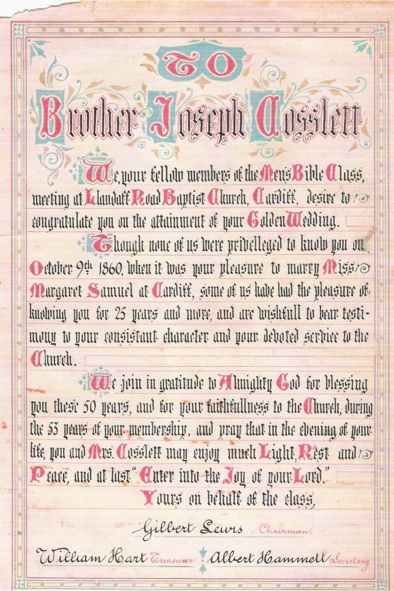 TO
Brother Joseph Cosslett
We, your fellow members of the Men's Bible Class,
meeting at Llandaff Road Baptist Church, Cardiff, desire to
congratulate you on the attainment of your Golden Wedding.
Though none of us were privelleged to know you on
October 9th 1860, when it was your pleasure to marry Miss
Margaret Samuel at Cardiff, some of us have had the pleasure of
knowing you for 25 years and more, and are wishfull to bear testi-
mony to your consistant character and your devoted service to the
Church.
We join in gratitude to Almighty God for blessing
you these 50 years, and for your faithfullness to the Church, during
the 55 years of your membership, and pray that in the evening of your
life, you and Mrs. Cosslett may enjoy much Light, Rest and
Peace, and at last "Enter into the Joy of your Lord."
Yours on behalf of the class,
Gilbert Lewis Chairman
William Hart Treasurer Albert Hammett Secretary